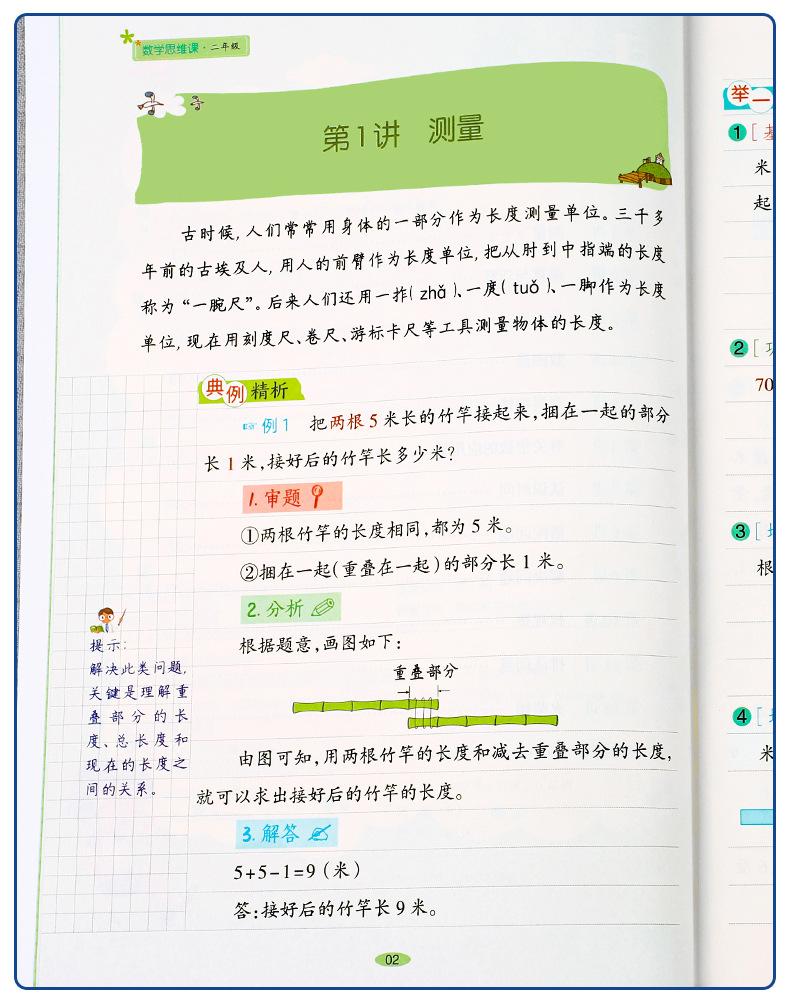 数学思维课·二年级
第1讲 测量
古时候，人们常常用身体的一部分作为长度测量单位。三千多
年前的古埃及人，用人的前臂作为长度单位，把从肘到中指端的长度
称为“一腕尺”。后来人们还用一拃（zhǎ）、一庹（tuǒ）、一脚作为长度
单位，现在用刻度尺、卷尺、游标卡尺等工具测量物体的长度。
典例精析
例1 把两根5米长的竹竿接起来，捆在一起的部分
长1米，接好后的竹竿长多少米？
1.审题
①两根竹竿的长度相同，都为5米。
②捆在一起（重叠在一起）的部分长1米。
2.分析
根据题意，画图如下：
重叠部分
由图可知，用两根竹竿的长度和减去重叠部分的长度，
就可以求出接好后的竹竿的长度。
3.解答
5+5-1=9（米）
答：接好后的竹竿长9米。
提示：
解决此类问题，
关键是理解重
叠部分的长
度、总长度和
现在的长度之
间的关系。
02
举一
1
米
起
2
70
3
根
4
米